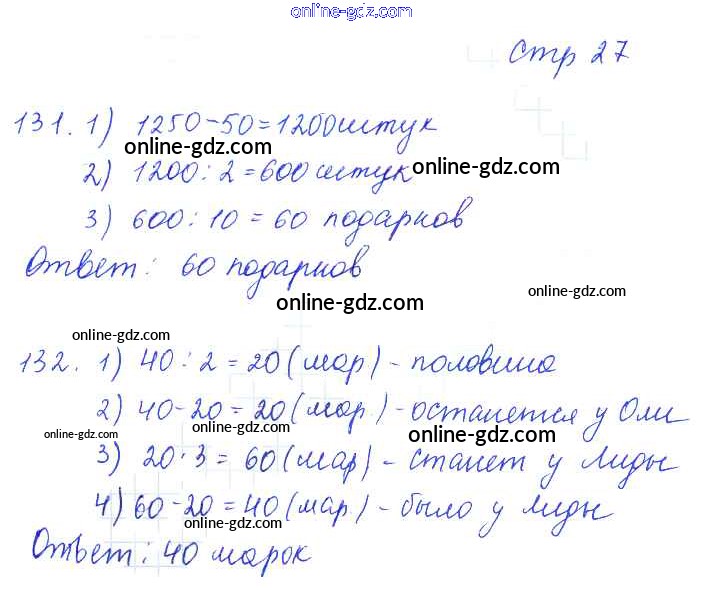 online-gdz.com
Стр 27
131. 1) 1250-50=1200штук
online-gdz.com
2) 1200:2=600 штук
online-gdz.com
3) 600:10=60 подарков
Ответ: 60 подарков
online-gdz.com
online-gdz.com
online-gdz.com
132. 1) 40:2=20(мар) - половина
2) 40-20=20(мар.) - останется у Оли
online-gdz.com
online-gdz.com
3) 20·3=60(мар) - станет у Лиды
online-gdz.com
4) 60-20=40(мар) - было у Лиды
online-gdz.com
Ответ: 40 марок